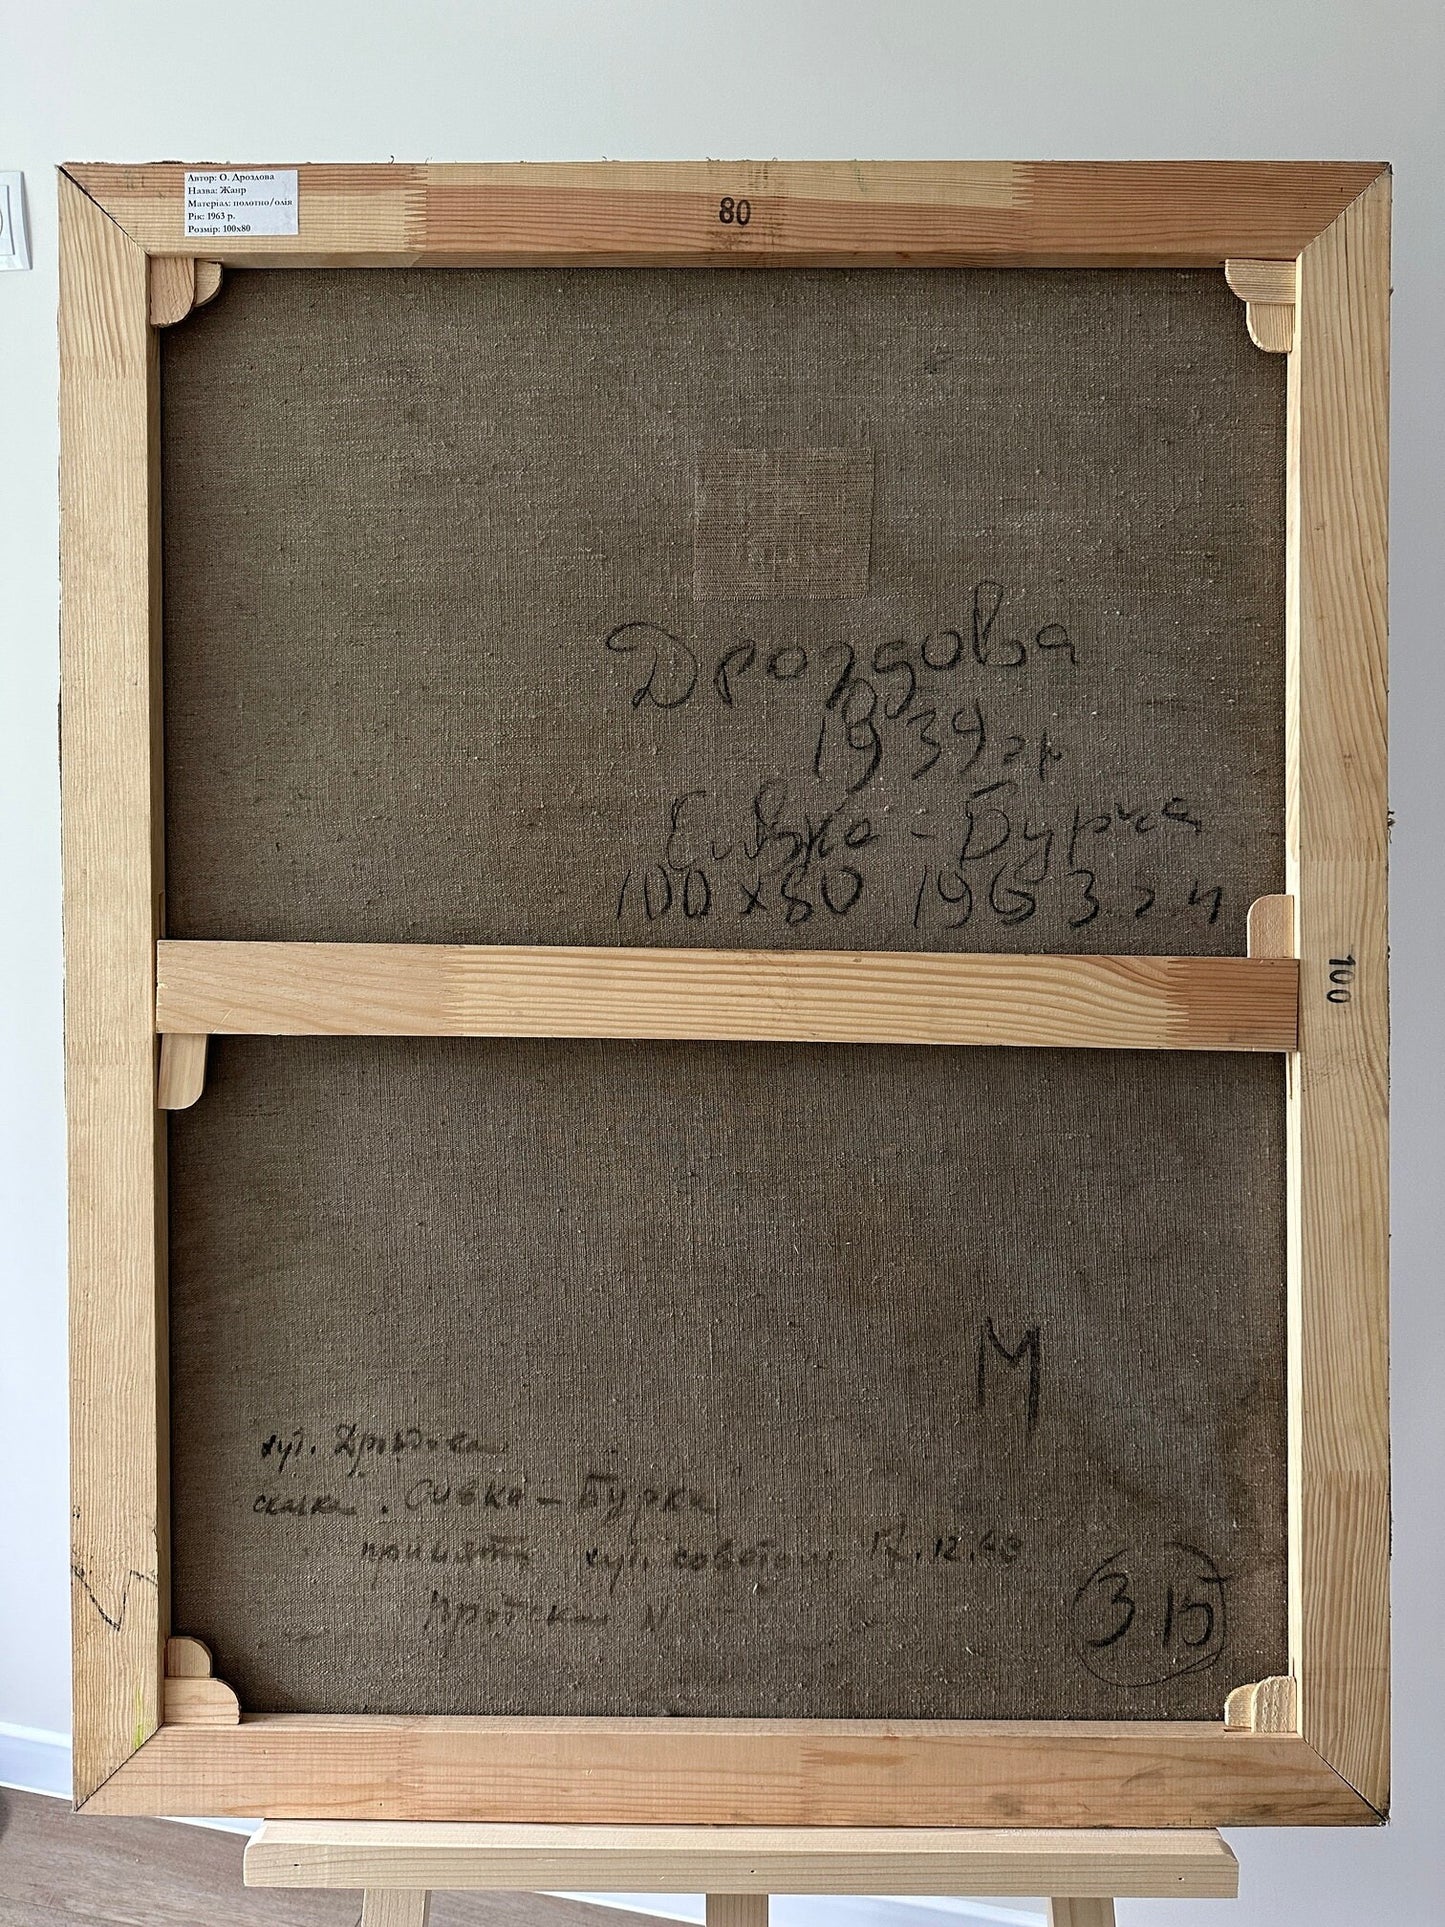 Автор: О. Дроздова
Назва: Жанр
Матеріал: полотно/олія
Рік: 1963 р.
Розмір: 100x80
80
Дроздова
1939 гр
Сивка - Бурка
100 x 80 1963 г
100
М
худ. Дроздова
сказка. Сивка - Бурка
принята худ. советом 12.63
Протокол N
315